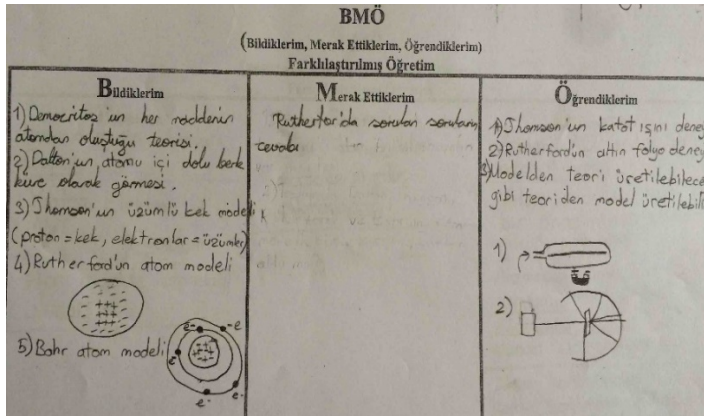 BMÖ
(Bildiklerim, Merak Ettiklerim, Öğrendiklerim)
Farklılaştırılmış Öğretim
Bildiklerim
1) Democritos'un her maddenin
atomdan oluştuğu teorisi.
2) Dalton'un, atomu içi dolu berk
küre olarak görmesi.
3) Thomson'un üzümlü kek modeli
(proton=kek, elektronlar=üzümler)
4) Rutherford'un atom modeli
5) Bohr atom modeli
e-
e-
e-
e-
e-
Merak Ettiklerim
sorulan soruların
cevabı
Öğrendiklerim
1) Thomson'un katot ışını deney
2) Rutherford'un altın folyo deney
3) Modelden teori üretilebilece
gibi teoriden model üretilebili
1)
2)